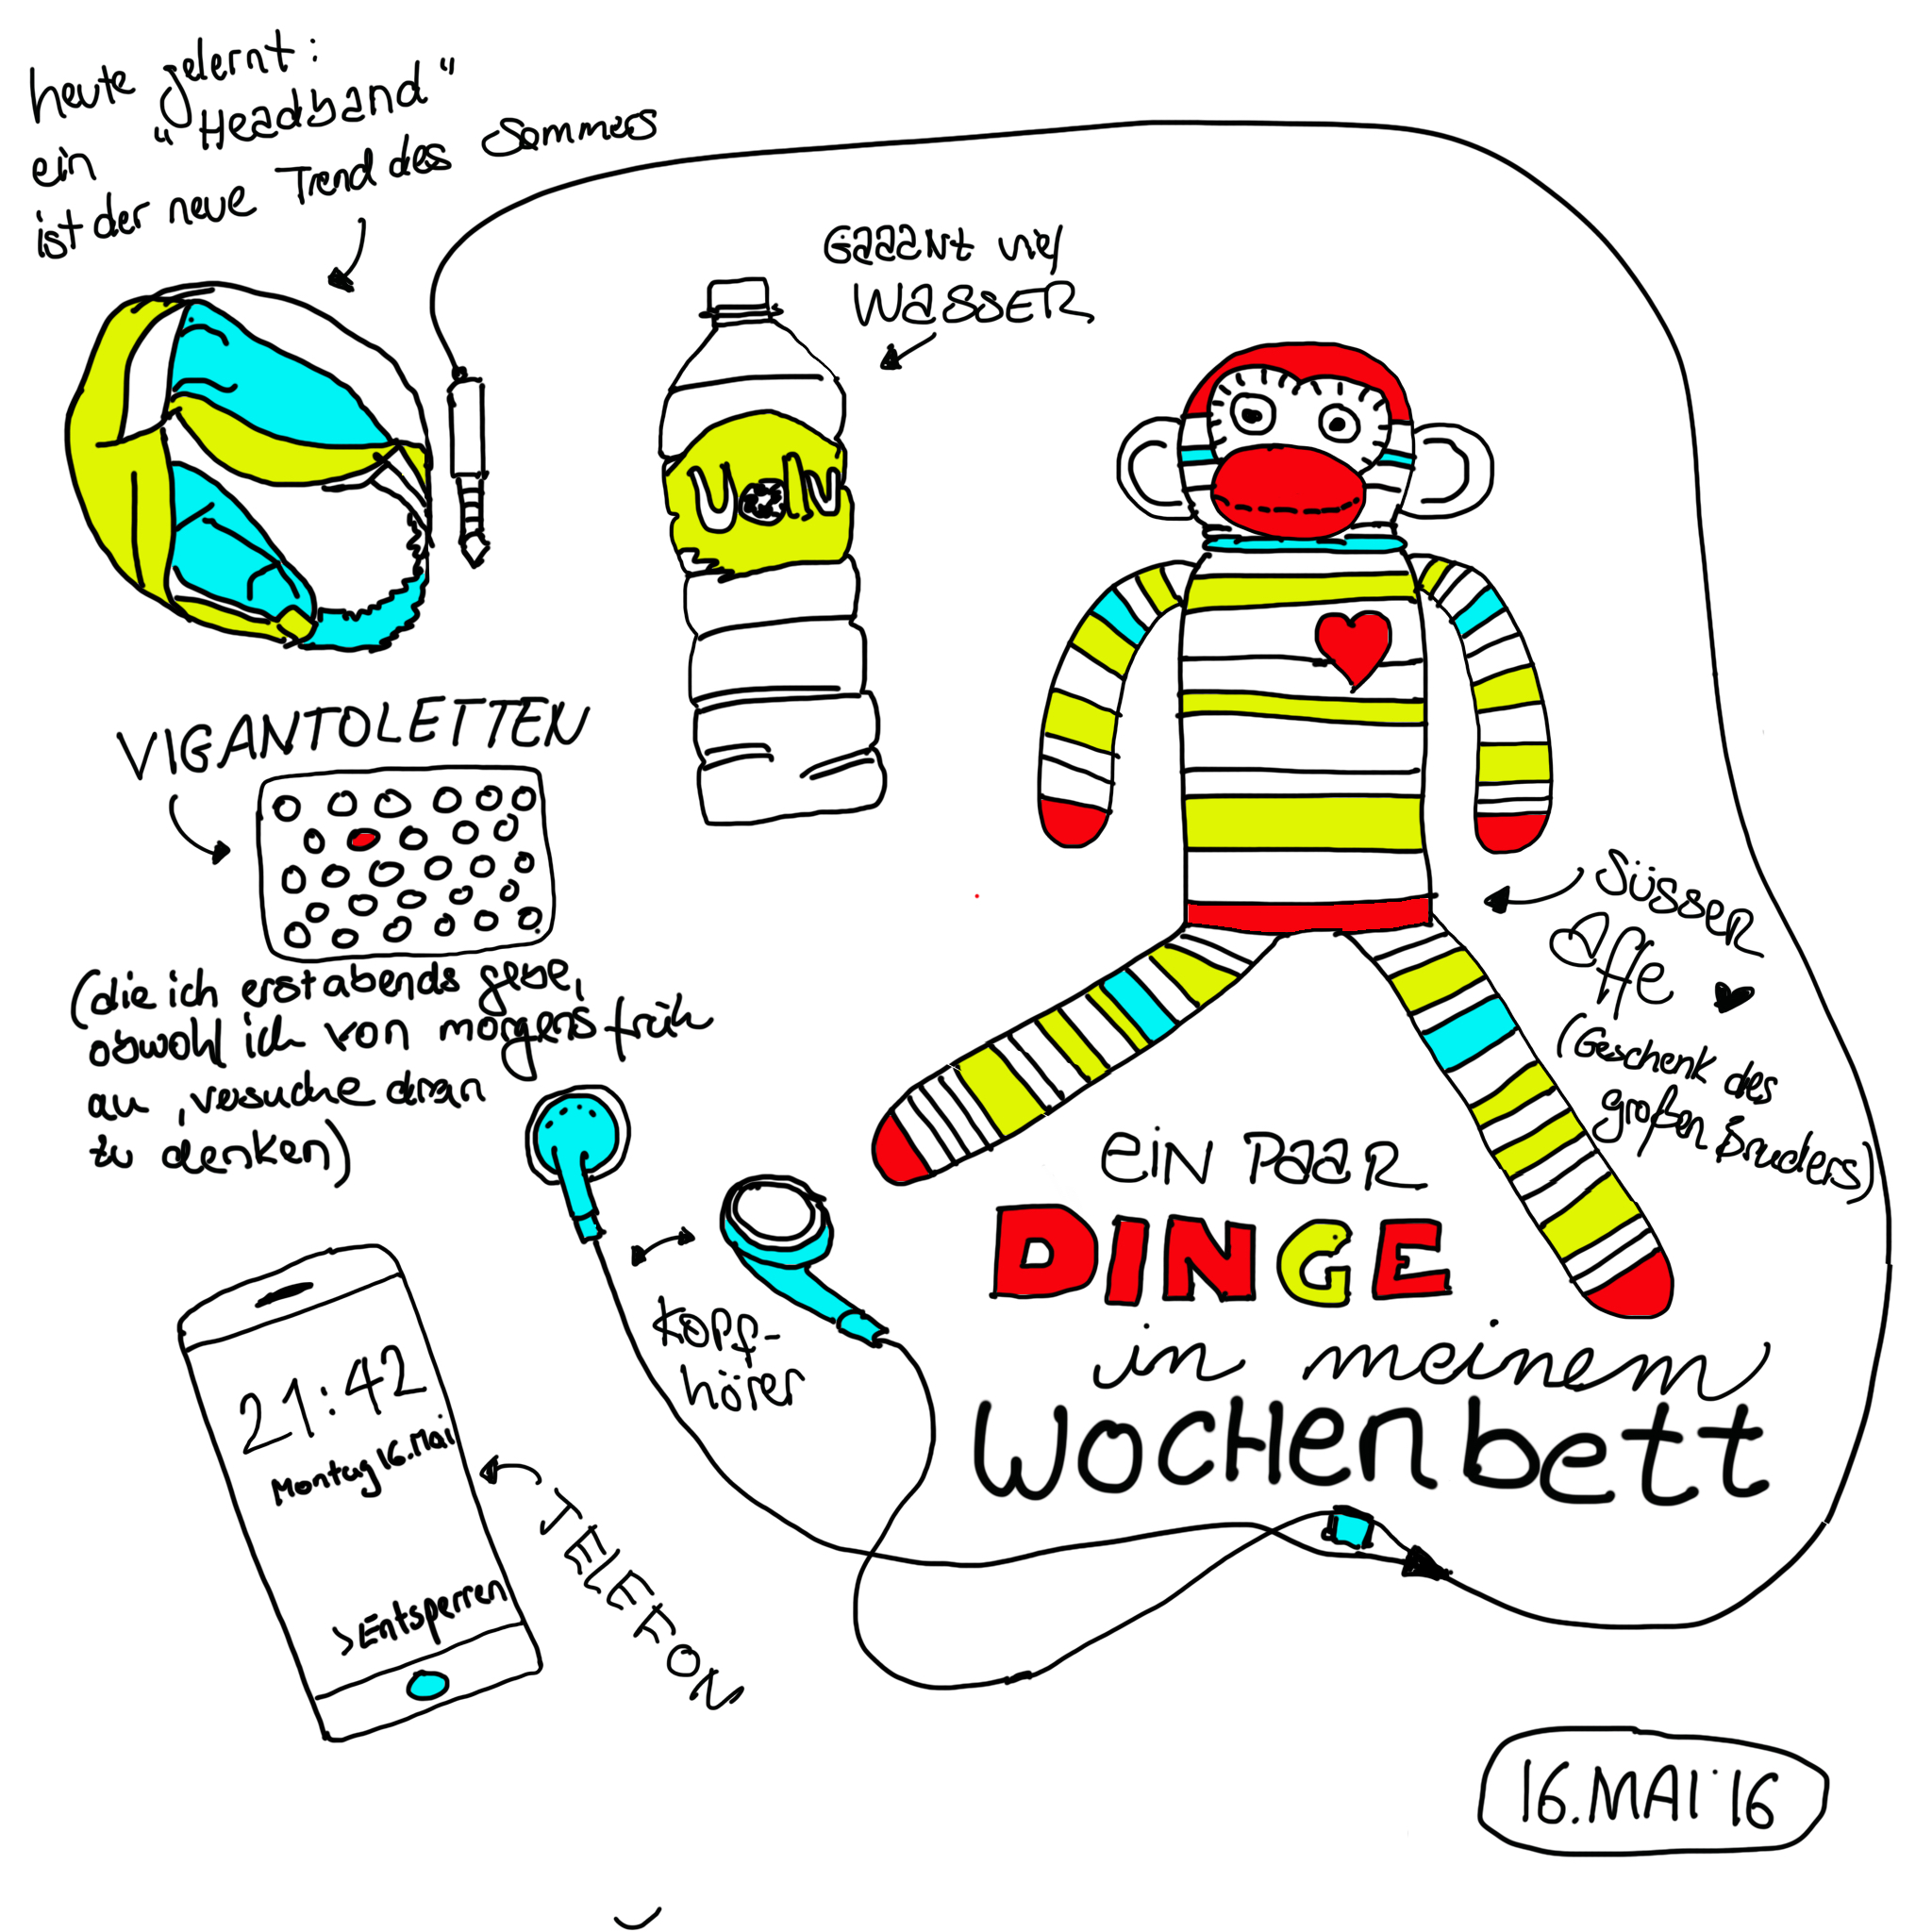 heute gelernt:
ein "Headband"
ist der neue Trend des Sommers
Gaaanz viel
WASSER
VIGANTOLETTEN
(die ich erst abends gebe,
obwohl ich von morgens früh
an versuche dran
zu denken)
SÜSSER
Affe
(Geschenk des
großen Bruders)
EIN PAAR
DINGE
in meinem
WOCHENbett
KOPF-
hörer
21:42
Montag 16. Mai
>Entsperren
TELEFON
16.MAI'16